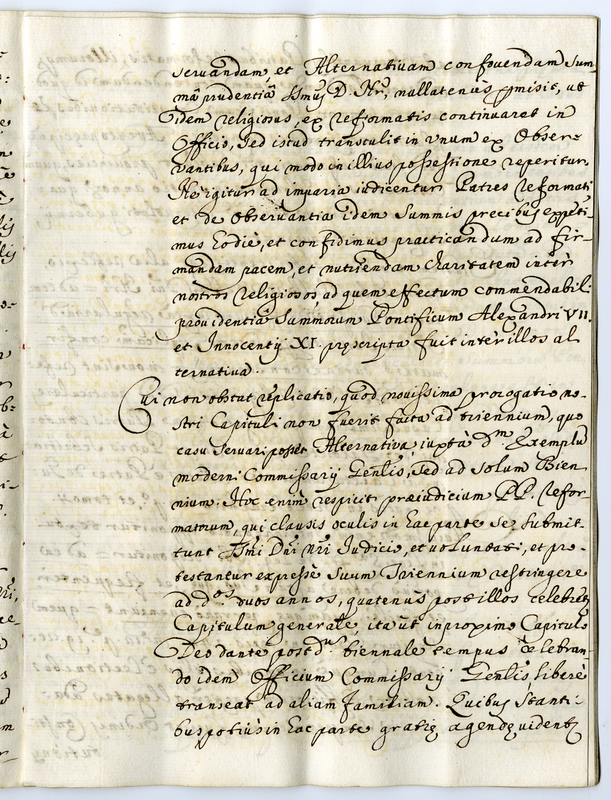 seruandam, et Alternatiuam confouendam sum-
mâ prudentiâ Ssmus D. Nr, nullatenus pmisit, ut
idem religiosus, ex reformatis continuaret in
Officio, sed istud transtulit in vnum ex Obser-
vantibus, qui modo in illius possessione reperitur.
Ne igitur ad imparia iudicentur Patres reformati
et de Obseruantia idem summis precibus expeti-
mus hodiè, et confidimus practicandum ad fir-
mandam pacem, et nutriendam charitatem inter
nostros religiosos, ad quem effectum commendabili
prouidentiâ Summorum Pontificum Alexandri VII.
et Innocentij XI. prescripta fuit inter illos al
ternatiua.
Cui non obstat replicatio, quod nouissima prorogatio no-
stri Capituli non fuerit facta ad triennium, quo
casu seruari posset Alternatiua iuxta dm Exemplu
moderni Commissarij Genlis, sed ad solum Bien
nium. Hoc enim respicit praeiudicium PP. Refor-
matorum, qui clausis oculis in hac parte sez submit-
tunt Ssmi Dni nri Iudicio, et voluntati, et pro-
testantur expressè suum Triennium restringere
ad dos. duos annos, quatenus post illos celebretz
Capitulum generale, ita ut in proximo Capitulo
Deo dante post dm biennale tempus celebran-
do idem Officium Commissarij Genlis, liberè
transeat ad aliam familiam. Quibus stanti-
bus potius in hac parte gratię agendę uidentz